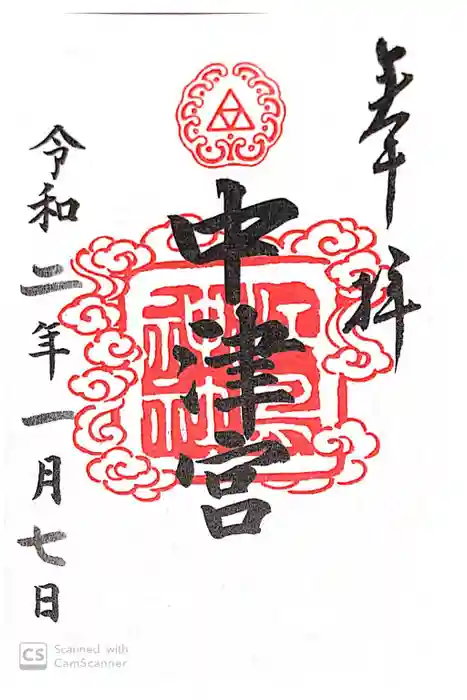 奉拝
中津宮
江島神社
令和二年一月七日
CS Scanned with
CamScanner